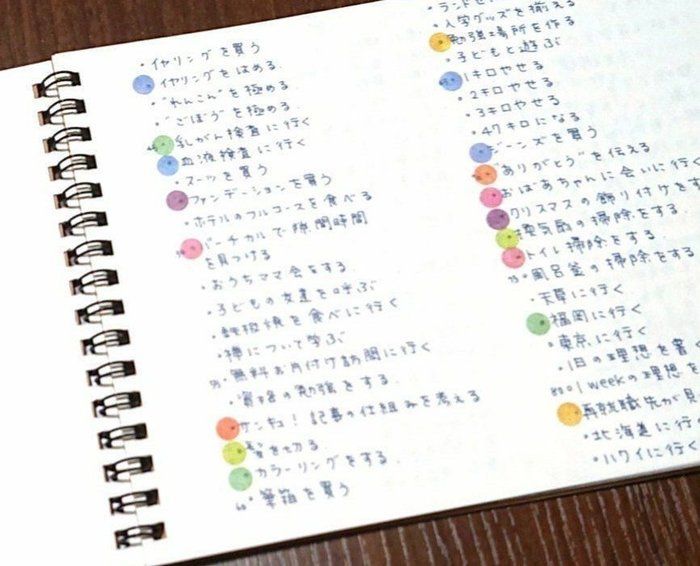 ・イヤリングを買う
イヤリングをはめる.
・"れんこん"を極める.
・"ごぼう"を極める.
乳がん検査に行く
血液検査に行く
・スーツを買う
ファンデーションを買う
・ホテルのフルコースを食べる
バーチカルで隙間時間
を見つける
・おうちママ会をする.
・子どもの友達を呼ぶ
・を食べに行く
・禅について学ぶ
・無料お片付け訪問に行く
・資格の勉強をする.
サンキュ!記事の仕組みを考える
髪を切る.
カラーリングをする.
60・筆箱を買う
・ランドセ
・入学グッズを揃える
勉強場所を作る
・子どもと遊ぶ
1キロやせる
・2キロやせる
・3キロやせる
・47キロになる
ジーンズを買う
"ありがとう"を伝える
おばあちゃんに会いに行く
クリスマスの飾り付けをす
換気扇の掃除をする.
トイレ掃除をする.
・風呂釜の掃除をする.
・天草に行く
福岡に行く
・東京に行く
・1日の理想を書く
・1weekの理想を
再就職先が見
・北海道に行
・ハワイに行く